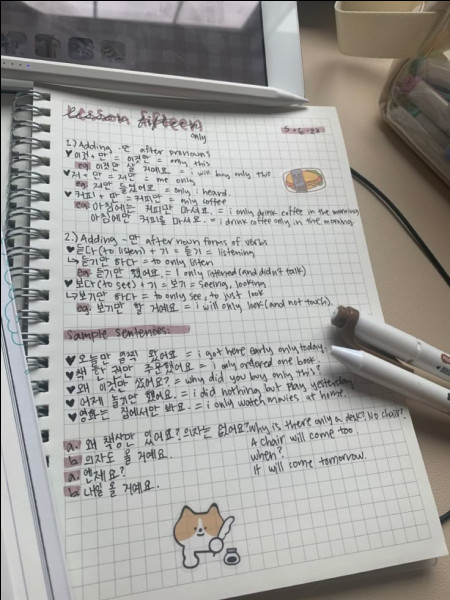 Lesson fifteen
only
1.) Adding -만 after pronouns
♥ 이것 + 만 = 이것만 = only this
eg. 이것만 살 거예요. = i will buy only this
♥ 저 + 만 = 저만 = me only
eg. 저만 들었어요. = only i heard.
♥ 커피 + 만 = 커피만 = only coffee
eg. 아침에는 커피만 마셔요. = i only drink coffee in the morning
아침에만 커피를 마셔요. = i drink coffee only in the morning.
2.) Adding -만 after noun forms of verbs
♥ 듣다 (to listen) + 기 = 듣기 = listening
↳ 듣기만 하다 = to only listen
eg. 듣기만 했어요. = I only listened (and didn't talk)
♥ 보다 (to see) + 기 = 보기 = seeing, looking
↳ 보기만 하다 = to only see, to just look
eg. 보기만 할 거예요. = i will only look (and not touch).
Sample Sentences:
♥ 오늘만 일찍 왔어요 = i got here early only today.
♥ 책 한 권만 주문했어요 = i only ordered one book.
♥ 왜 이것만 샀어요? = why did you buy only this?
♥ 어제 놀기만 했어요. = i did nothing but play yesterday
♥ 영화는 집에서만 봐요. = i only watch movies at home.
a. 왜 책상만 있어요? 의자는 없어요? Why is there only a desk? No chair?
b. 의자도 올 거예요. A chair will come too
a. 언제요? when?
b. 내일 올 거예요. It will come tomorrow.